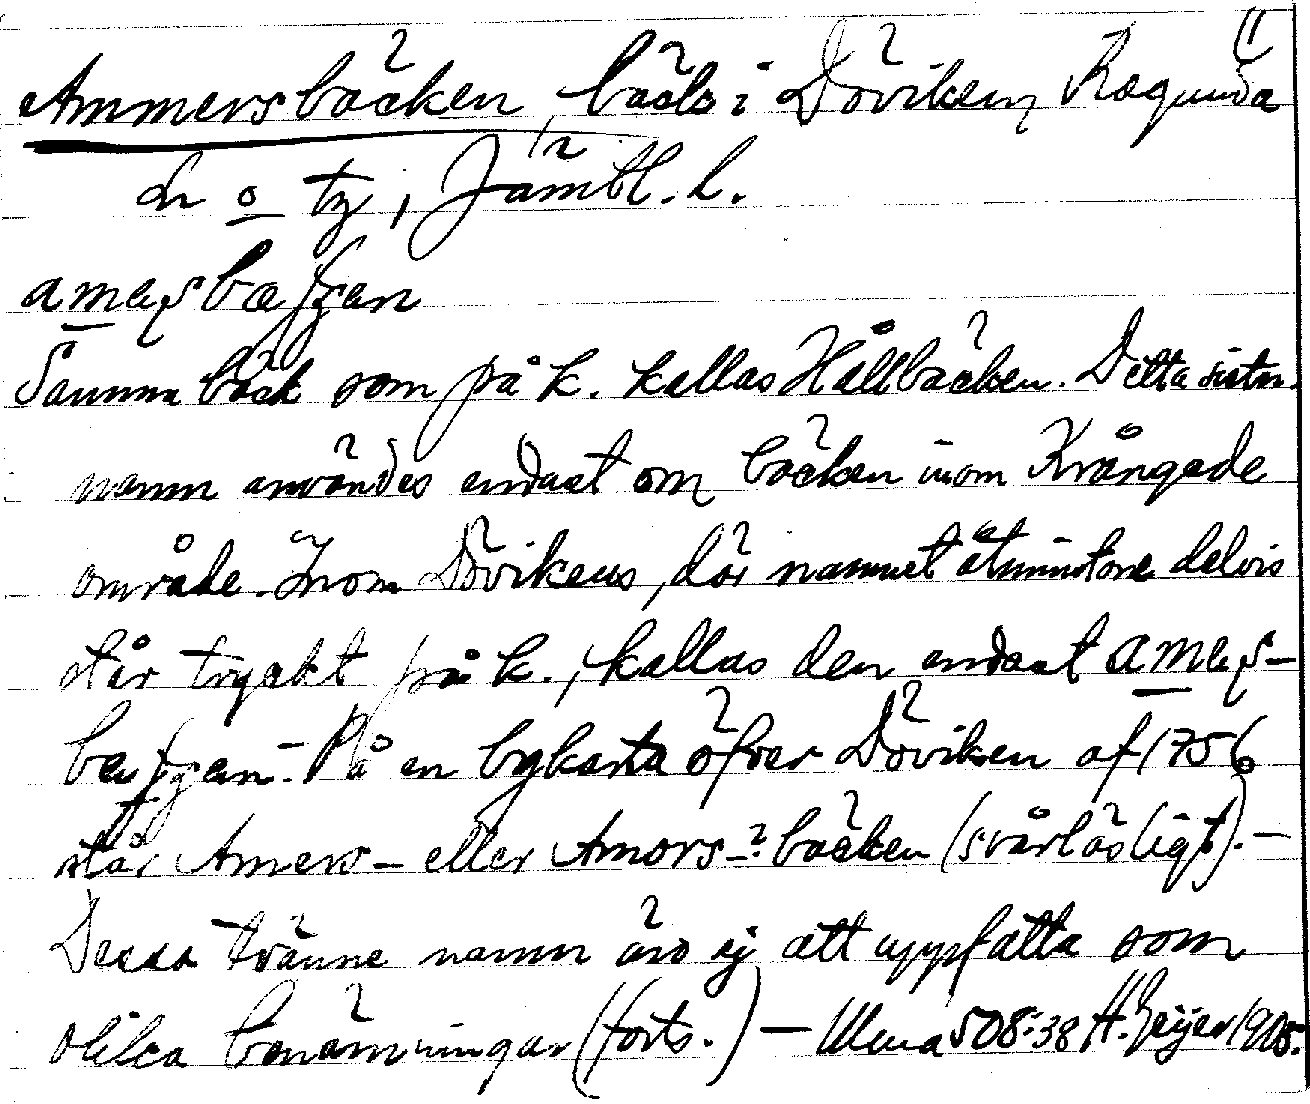 Ammersbäcken, bäck i Döviken, Ragunda
sn o tg, Jämtl. l.
Samma bäck som på k. kallas Hållbäcken. Detta sistn.
namn användes endast om bäcken inom Krångede
område. Inom Dövikens, där namnet åtminstone delvis
står tryckt på k., kallas den endast
På en bykarta öfver Döviken af 1756
står Amers- eller Amors-? bäcken (svårläsligt). —
Dessa tvänne namn äro ej att uppfatta som
olika benämningar (forts.) — Ulma 508:38 H. Geijer 1905.